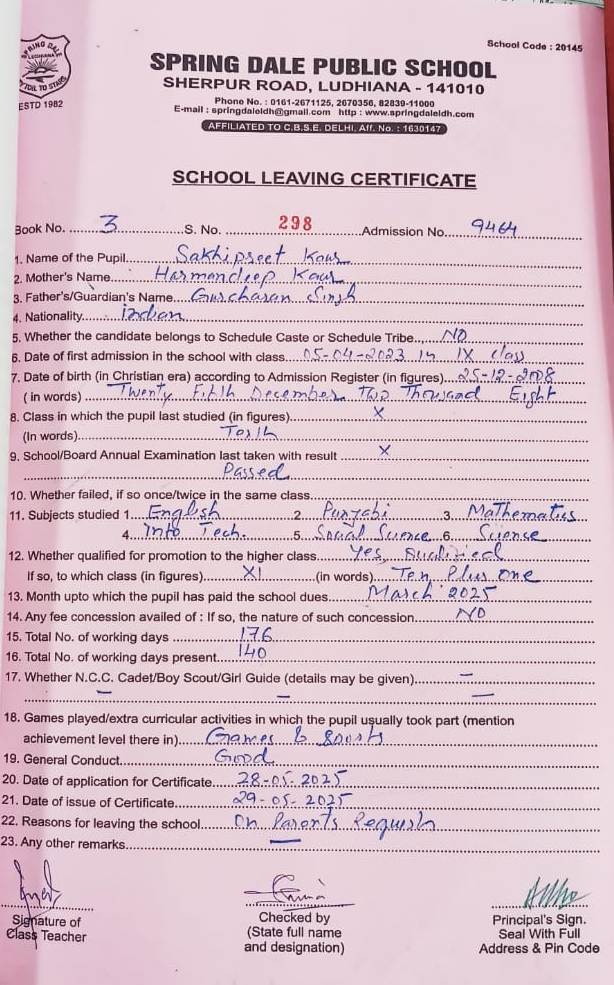 SPRING DALE
LUDHIANA
TOIL TO STARS
ESTD 1982
School Code : 20145
SPRING DALE PUBLIC SCHOOL
SHERPUR ROAD, LUDHIANA - 141010
Phone No. : 0161-2671125, 2670356, 82839-11000
E-mail : springdaleldh@gmail.com http : www.springdaleldh.com
AFFILIATED TO C.B.S.E. DELHI, Aff. No. : 1630147
SCHOOL LEAVING CERTIFICATE
Book No. 3 S. No. 298 Admission No. 9464
1. Name of the Pupil Sakhipreet Kaur
2. Mother's Name Harmandeep Kaur
3. Father's/Guardian's Name Gurcharan Singh
4. Nationality Indian
5. Whether the candidate belongs to Schedule Caste or Schedule Tribe NO
6. Date of first admission in the school with class 05-04-2023 in IX class
7. Date of birth (in Christian era) according to Admission Register (in figures) 25-12-2008
(in words) Twenty Fifth December Two Thousand Eight
8. Class in which the pupil last studied (in figures) X
(In words) Tenth
9. School/Board Annual Examination last taken with result X
Passed
10. Whether failed, if so once/twice in the same class
11. Subjects studied 1. English 2. Punjabi 3. Mathematics
4. Info Tech. 5. Social Science 6. Science
12. Whether qualified for promotion to the higher class Yes, Qualified
If so, to which class (in figures) XI (in words) Ten Plus One
13. Month upto which the pupil has paid the school dues March 2025
14. Any fee concession availed of : If so, the nature of such concession NO
15. Total No. of working days 176
16. Total No. of working days present 140
17. Whether N.C.C. Cadet/Boy Scout/Girl Guide (details may be given) —
— — —
18. Games played/extra curricular activities in which the pupil usually took part (mention
achievement level there in) Games & Sports
19. General Conduct Good
20. Date of application for Certificate 28-05-2025
21. Date of issue of Certificate 29-05-2025
22. Reasons for leaving the school On Parents Request
23. Any other remarks —
Signature of
Class Teacher
Checked by
(State full name
and designation)
Principal's Sign.
Seal With Full
Address & Pin Code